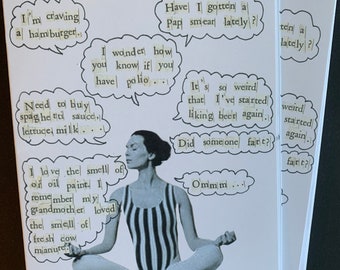 I'm craving
a hamburger.
Have I gotten a
Pap smear lately?
I wonder how
you know if you
have polio...
Need to buy
spaghetti sauce,
lettuce, milk....
It's so weird
that I've started
liking beer again.
Did someone fart?
I love the smell of
oil paint. I
remember my
grandmother loved
the smell of
fresh cow
manure.
Ommm...
gotten a
lately?
weird
started
again.
fart?